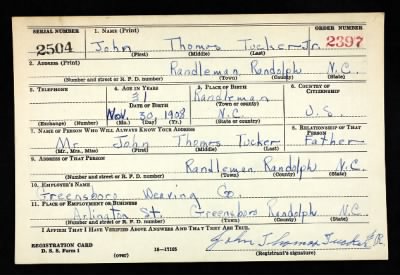 SERIAL NUMBER 1. NAME (Print) ORDER NUMBER
2504 John Thomas Tucker Jr. 2397
(First) (Middle) (Last)
2. ADDRESS (Print)
Randleman Randolph N.C.
(Number and street or R. F. D. number) (Town) (County) (State)
3. TELEPHONE 4. AGE IN YEARS 5. PLACE OF BIRTH 6. COUNTRY OF CITIZENSHIP
31 Randleman
DATE OF BIRTH (Town or county)
Nov. 30 1908 N.C. U.S.
(Exchange) (Number) (Mo.) (Day) (Yr.) (State or country)
7. NAME OF PERSON WHO WILL ALWAYS KNOW YOUR ADDRESS 8. RELATIONSHIP OF THAT PERSON
Mr. John Thomas Tucker Father
(Mr., Mrs., Miss) (First) (Middle) (Last)
9. ADDRESS OF THAT PERSON
Randleman Randolph N.C.
(Number and street or R. F. D. number) (Town) (County) (State)
10. EMPLOYER'S NAME
Greensboro Weaving Co.
11. PLACE OF EMPLOYMENT OR BUSINESS
Arlington St. Greensboro Randolph N.C.
(Number and street or R. F. D. number) (Town) (County) (State)
I AFFIRM THAT I HAVE VERIFIED ABOVE ANSWERS AND THAT THEY ARE TRUE.
John Thomas Tucker JR.
REGISTRATION CARD
D. S. S. Form 1 16—17105 (Registrant's signature)
(over)